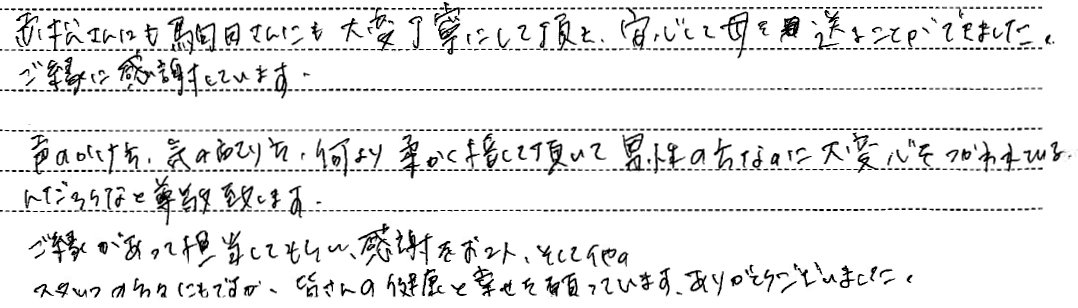 さんにも馬田さんにも大変丁寧にして頂き、安心して母を送ることができました。
ご縁に感謝しています。
声のかけ方、気の配り方、何より柔かく接して頂いて男性の方なのに大変心をつかわれている
んだろうなと尊敬致します。
ご縁があって担当してもらい、感謝をホント、そして他の
スタッフの方々にもですが、皆さんの健康と幸せを願っています。ありがとうございました。